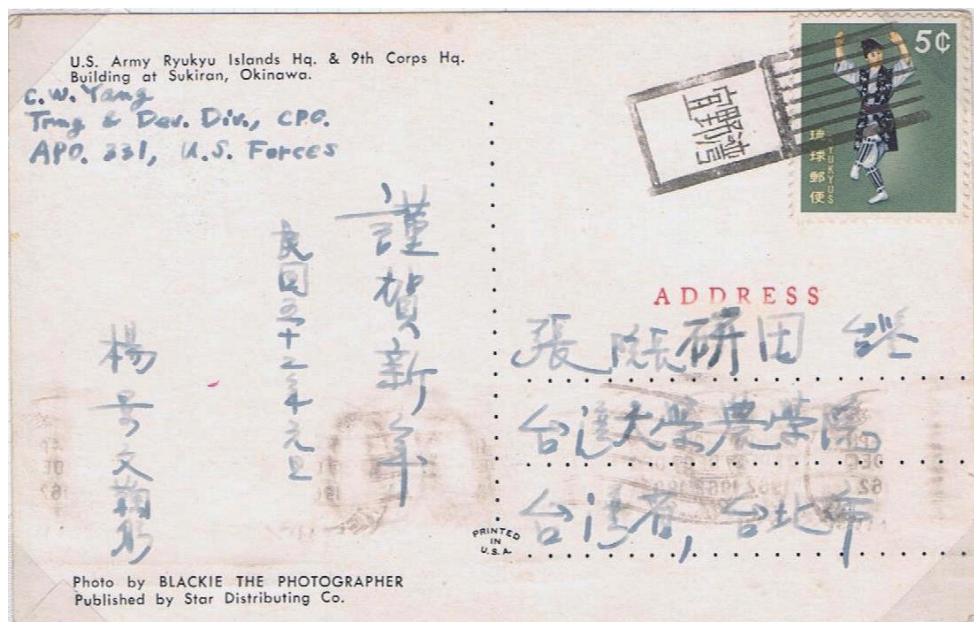 U.S. Army Ryukyu Islands Hq. & 9th Corps Hq.
Building at Sukiran, Okinawa.
C. W. Yang
Trng & Dev. Div., CPO.
APO. 331, U.S. Forces
謹賀新年
民国五十二年元旦
楊
文
5¢
琉球郵便
RYUKYUS
宜野湾
ADDRESS
張 院長 研田
台湾大学農学院
台湾省, 台北市
PRINTED
IN
U.S.A.
Photo by BLACKIE THE PHOTOGRAPHER
Published by Star Distributing Co.